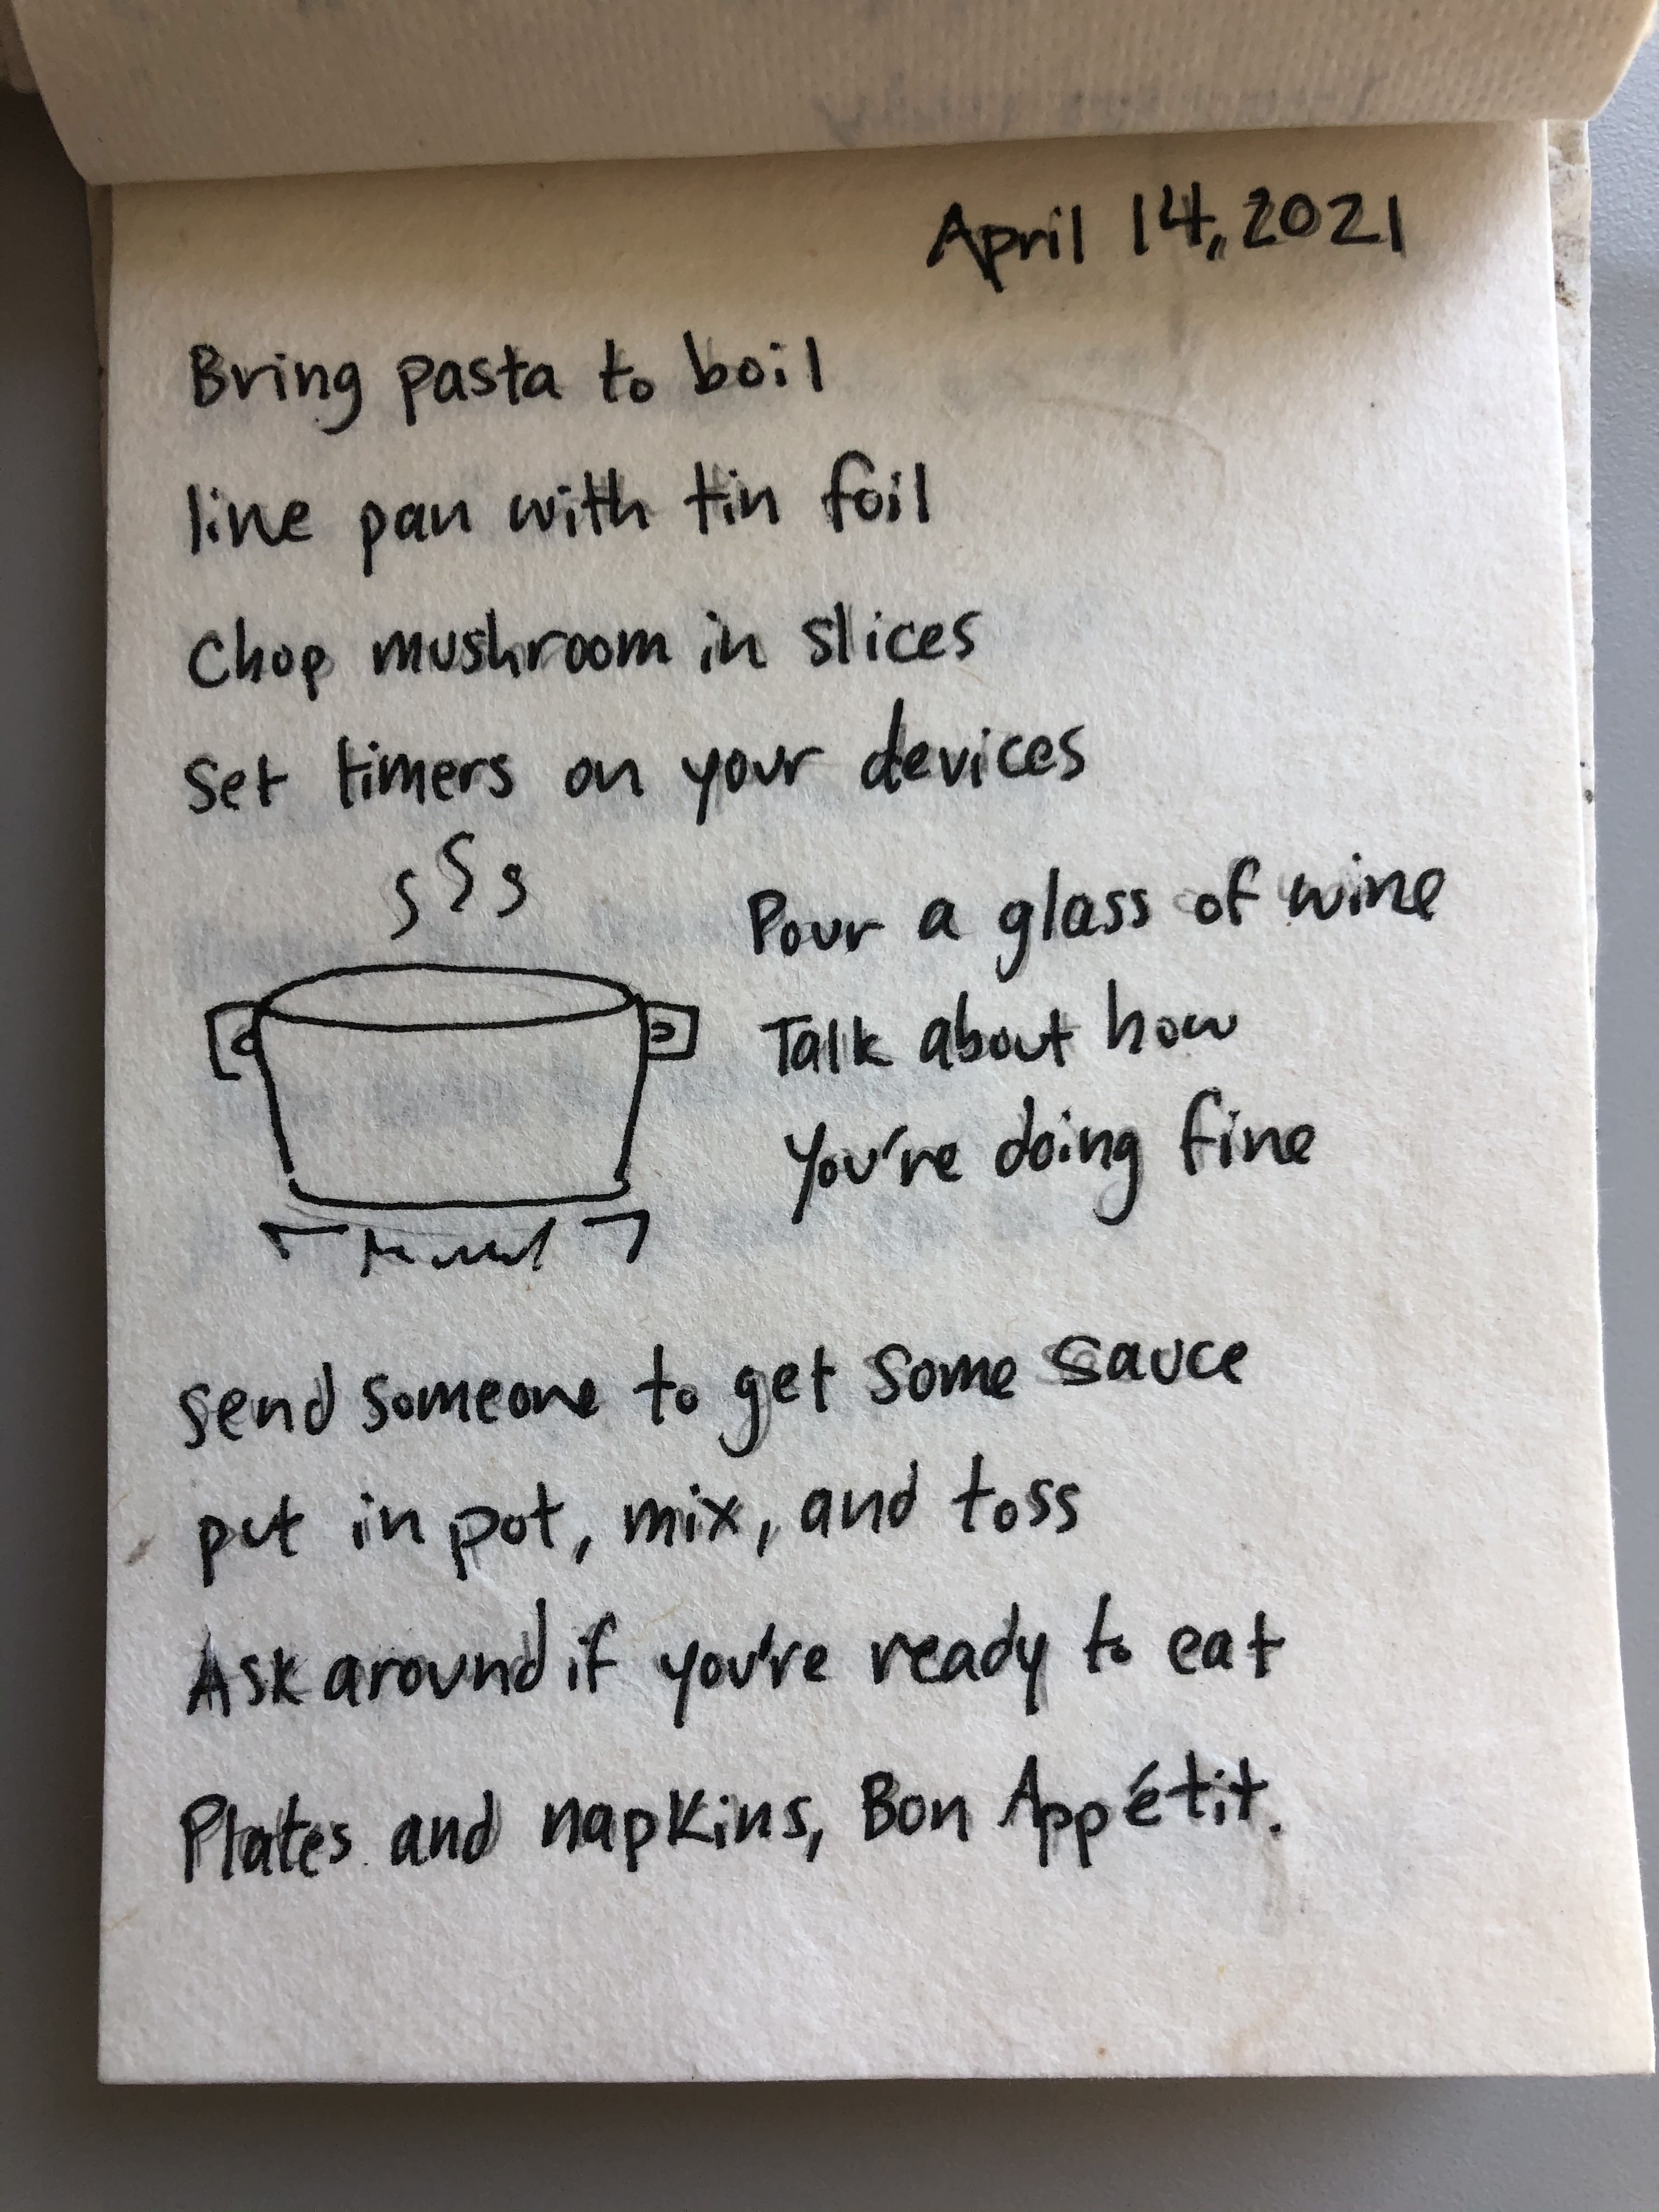 April 14, 2021
Bring pasta to boil
line pan with tin foil
Chop mushroom in slices
Set timers on your devices
Pour a glass of wine
Talk about how
You're doing fine
Send someone to get some sauce
put in pot, mix, and toss
Ask around if you're ready to eat
Plates and napkins, Bon Appétit.